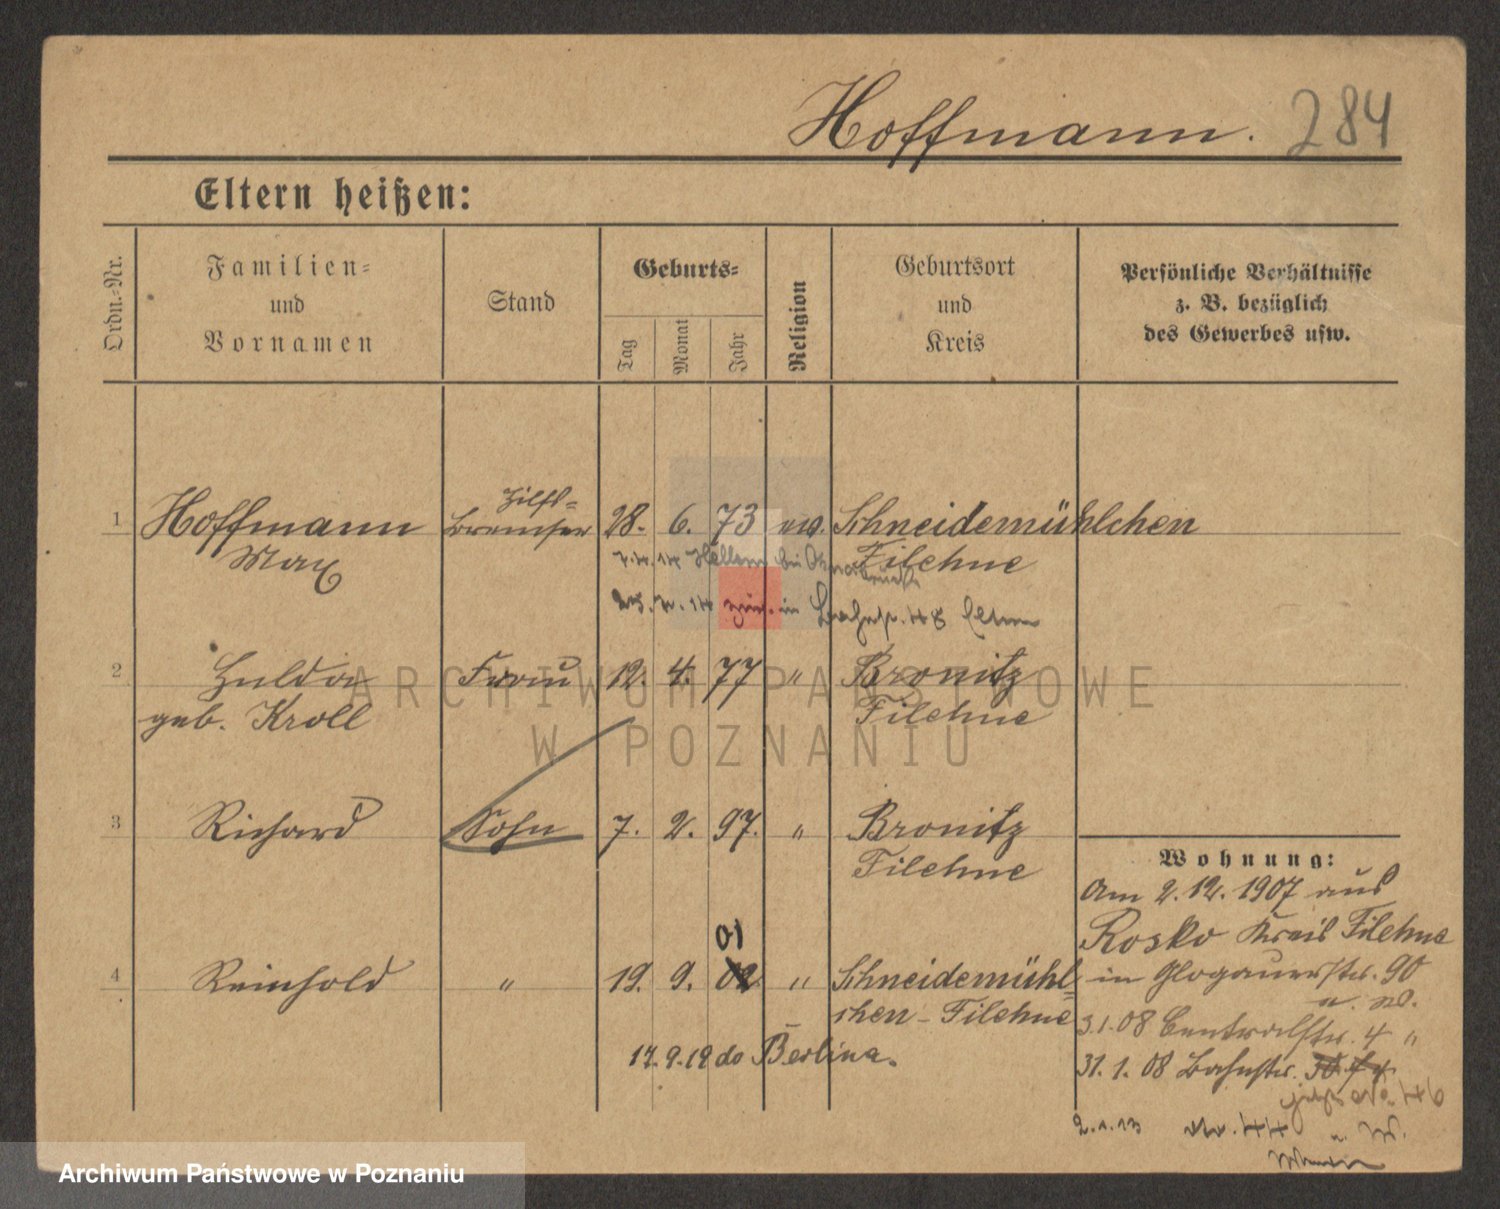 Hoffmann. 284
Eltern heißen:
Ordn.-Nr.
Familien-
und
Vornamen
Stand
Geburts-
Tag
Monat
Jahr
Religion
Geburtsort
und
Kreis
Persönliche Verhältnisse
z. B. bezüglich
des Gewerbes usw.
1 Hoffmann Hilfs-
bremser 28. 6. 73 Schneidemühlchen
Max Filehne
bei
in
2 Hulda Frau 12. 4. 77 " Bronitz
geb. Kroll Filehne
3 Richard Sohn 7. 2. 97. " Bronitz
Filehne
01
4 Reinhold " 19. 9. 02 " Schneidemühl-
chen - Filehne
17.9.19 do Berlina.
Wohnung:
Am 2. 12. 1907 aus
Rosko Kreis Filehne
in Glogauerstr. 90
3.1.08 Centralstr. 4 "
31. 1. 08 Bahnstr.
2.1.13
ARCHIWUM PAŃSTWOWE
W POZNANIU
Archiwum Państwowe w Poznaniu